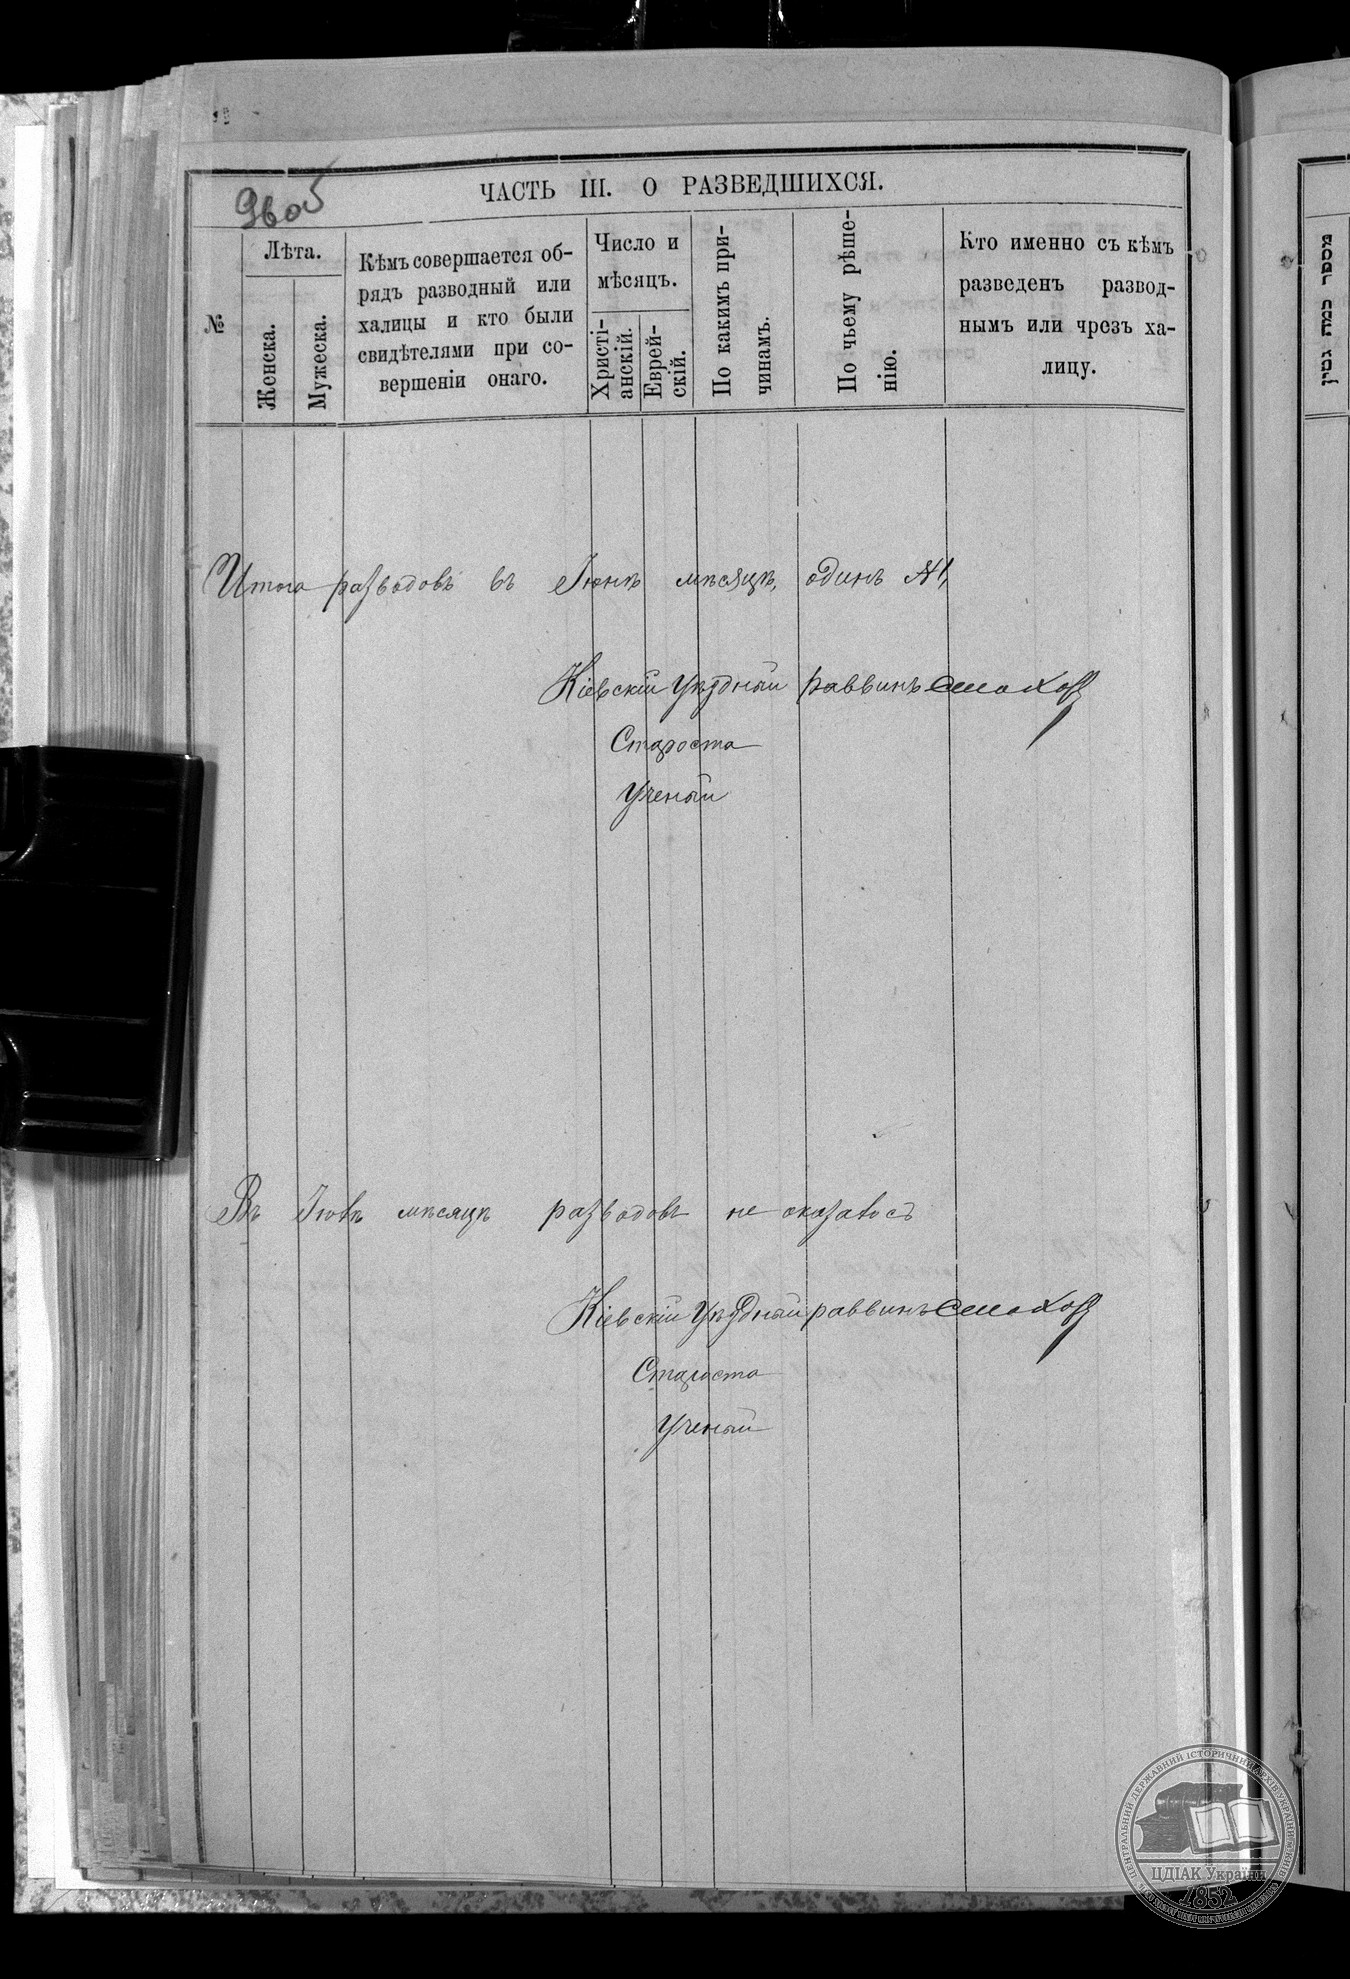 96об
ЧАСТЬ III. О РАЗВЕДШИХСЯ.
№
Лѣта.
Женска.
Мужеска.
Кѣмъ совершается об-
рядъ разводный или
халицы и кто были
свидѣтелями при со-
вершеніи онаго.
Число и
мѣсяцъ.
Христі-
анскій.
Еврей-
скій.
По какимъ при-
чинамъ.
По чьему рѣше-
нію.
Кто именно съ кѣмъ
разведенъ развод-
нымъ или чрезъ ха-
лицу.
מספר כמה גטין
Итого разводовъ въ Іюнѣ мѣсяцѣ, одинъ №1,
Кіевскій Уѣздный раввинъ
Староста
Ученый
Въ Іюлѣ мѣсяцѣ разводовъ не оказалось
Кіевскій Уѣздный раввинъ
Староста
Ученый
ЦЕНТРАЛЬНИЙ ДЕРЖАВНИЙ ІСТОРИЧНИЙ АРХІВ УКРАЇНИ
ЦДІАК України
1852